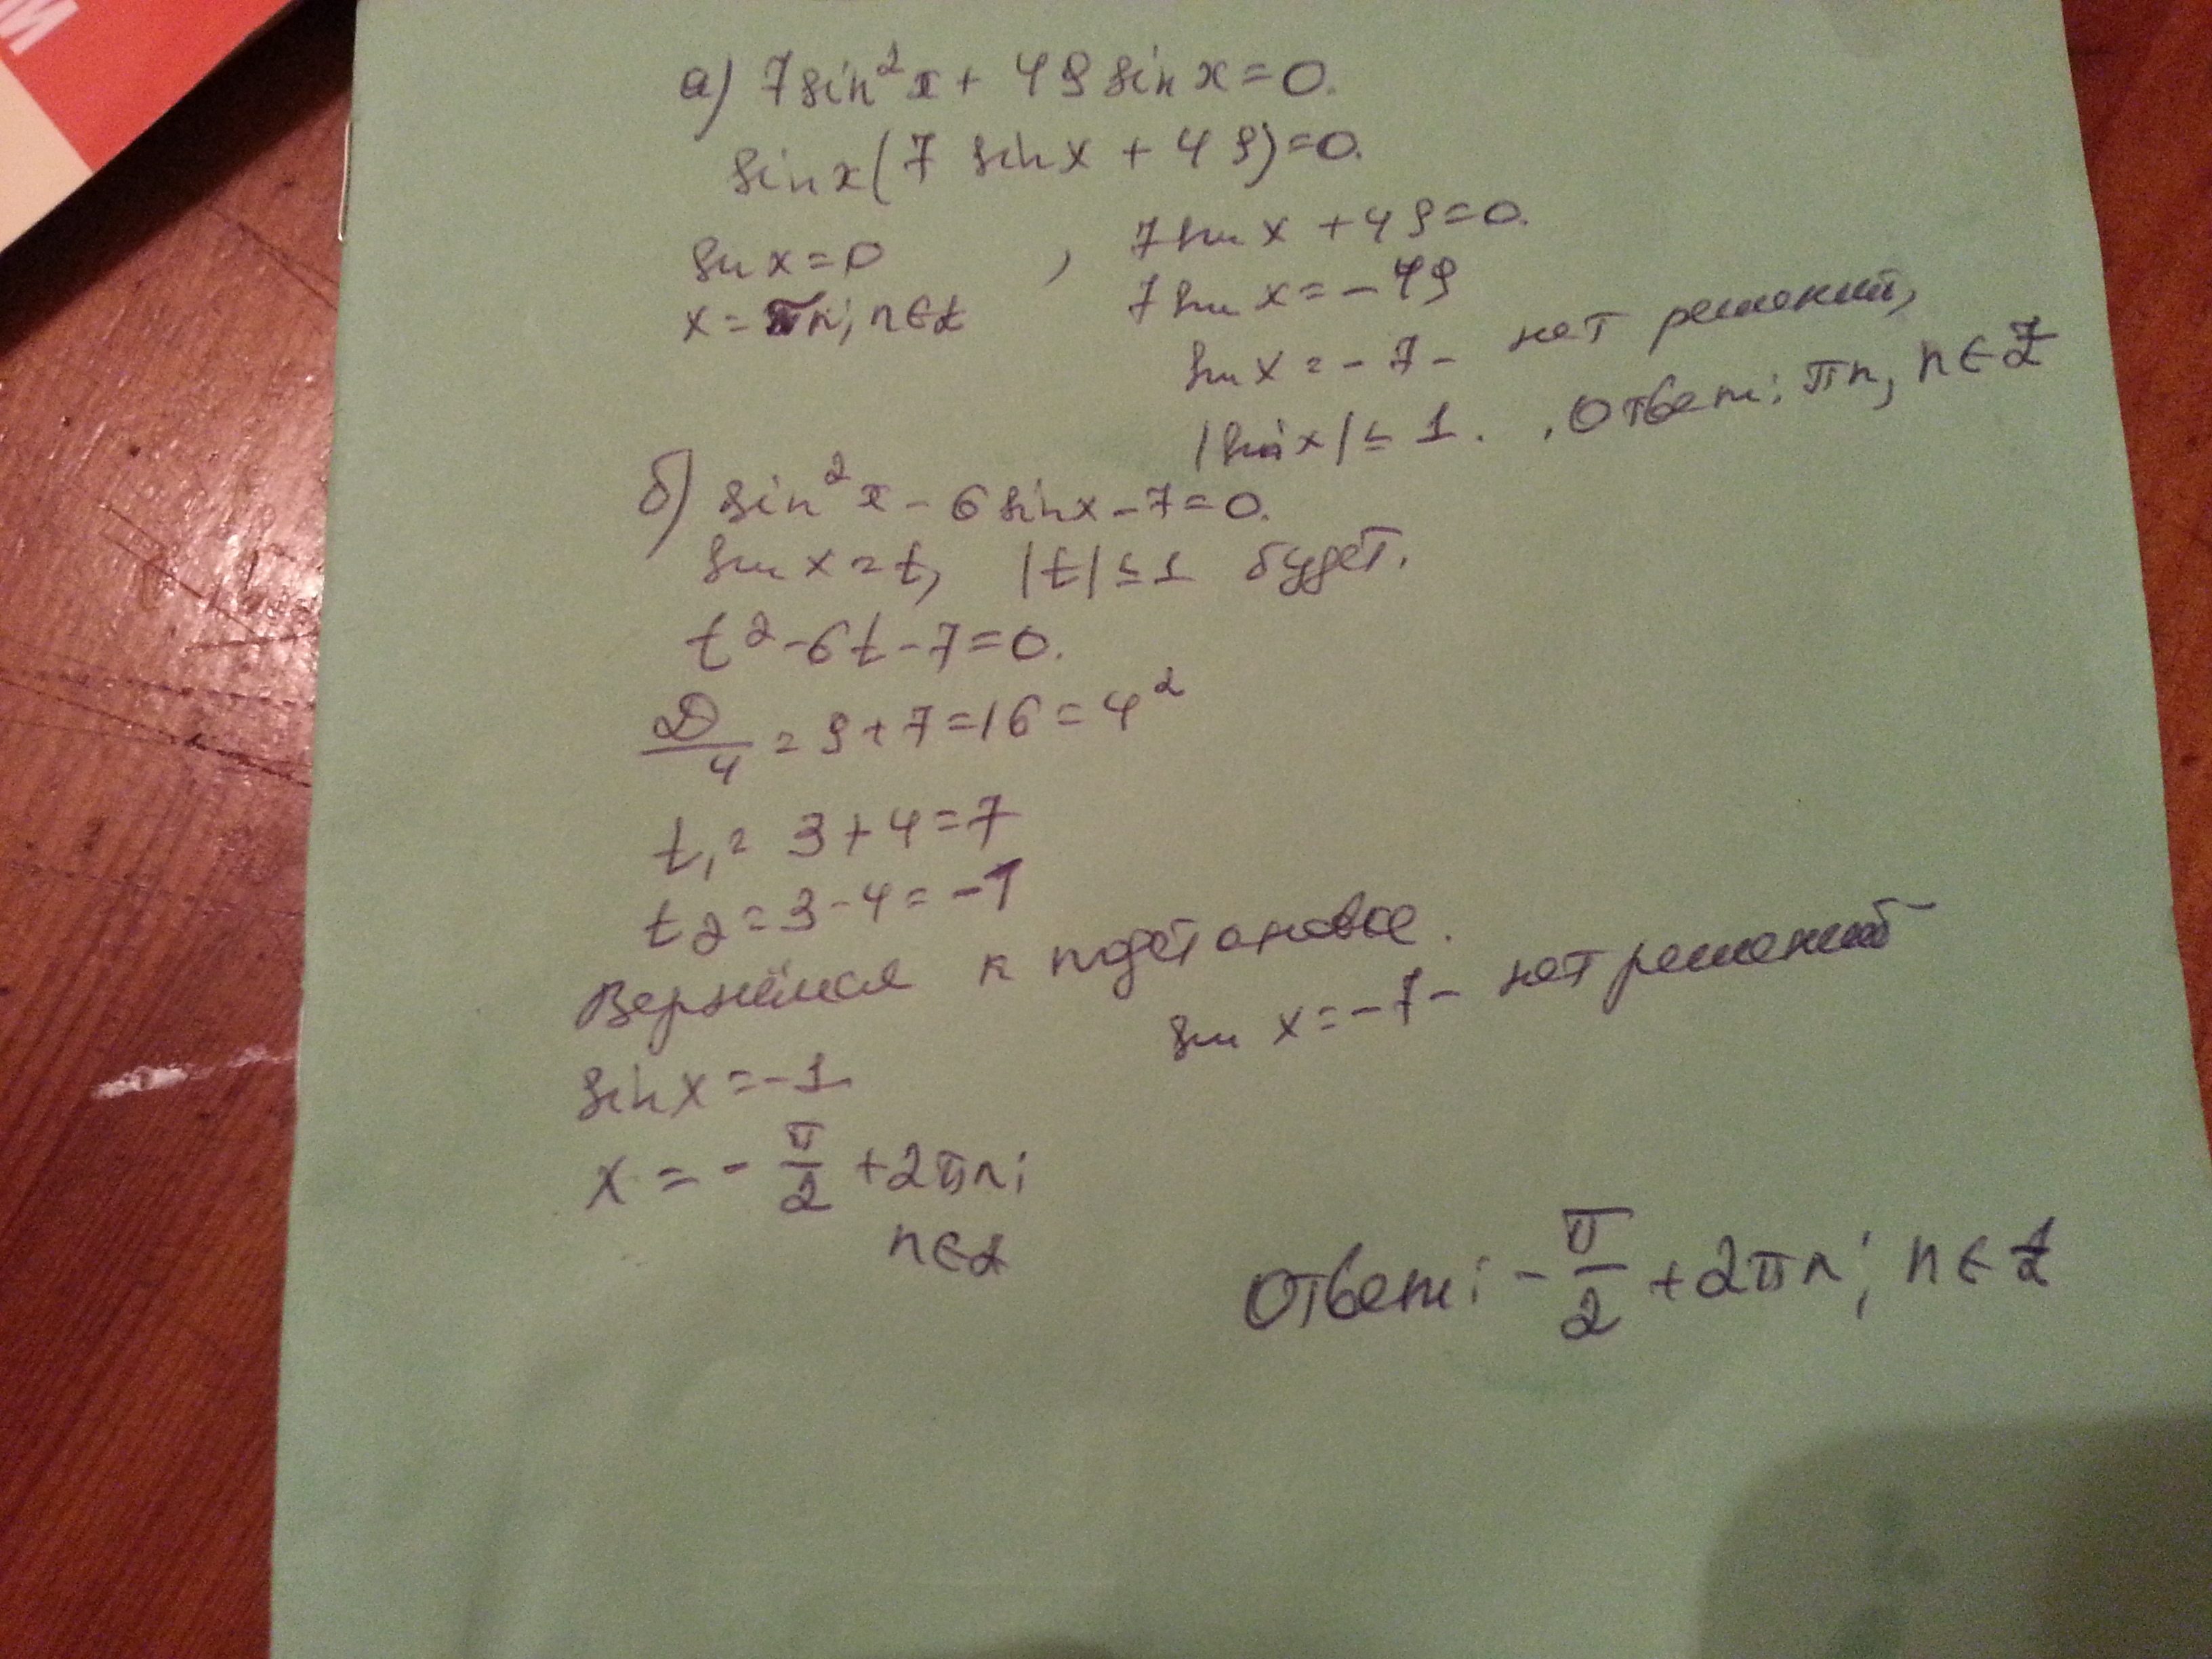 а) 7sin²x + 49 sin x = 0.
sin x(7 sin x + 49) = 0.
sin x = 0 , 7 sin x + 49 = 0.
x = πn; n ∈ Z 7 sin x = -49
sin x = -7 - нет решений,
|sin x| ≤ 1. . Ответ: πn, n ∈ Z
б) sin²x - 6 sin x - 7 = 0.
sin x = t, |t| ≤ 1 будет.
t² - 6t - 7 = 0.
D/4 = 9 + 7 = 16 = 4²
t₁ = 3 + 4 = 7
t₂ = 3 - 4 = -1
Вернёмся к подстановке.
sin x = -1 sin x = -7 - нет решений
x = - π/2 + 2πn;
n ∈ Z
Ответ: - π/2 + 2πn; n ∈ Z